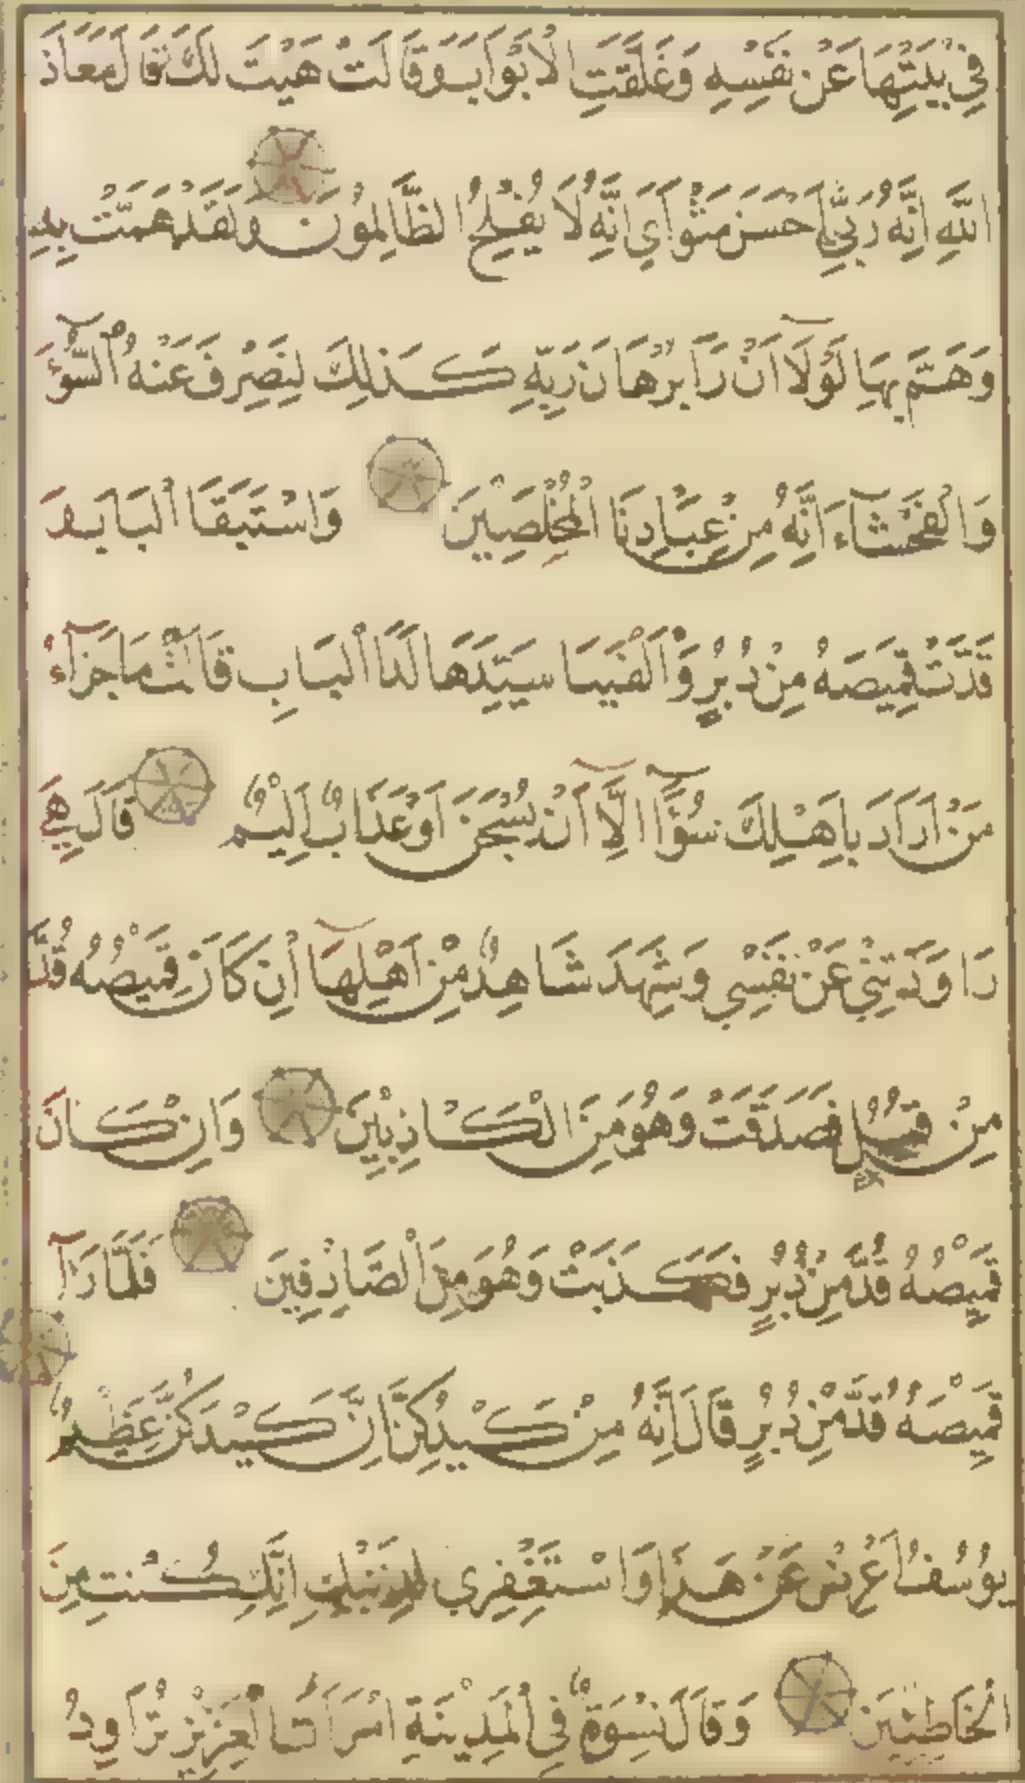 فِي بَيْتِهَا عَنْ نَفْسِهِ وَغَلَّقَتِ الْاَبْوَابَ وَقَالَتْ هَيْتَ لَكَ قَالَ مَعَاذَ
اللّٰهِ اِنَّهُ رَبِّي اَحْسَنَ مَثْوَايَ اِنَّهُ لَا يُفْلِحُ الظَّالِمُونَ وَلَقَدْ هَمَّتْ بِهِ
وَهَمَّ بِهَا لَوْلَا اَنْ رَاٰ بُرْهَانَ رَبِّهِ كَذَلِكَ لِنَصْرِفَ عَنْهُ السُّوٓءَ
وَالْفَحْشَآءَ اِنَّهُ مِنْ عِبَادِنَا الْمُخْلَصِيْنَ وَاسْتَبَقَا الْبَابَ وَ
قَدَّتْ قَمِيْصَهُ مِنْ دُبُرٍ وَاَلْفَيَا سَيِّدَهَا لَدَا الْبَابِ قَالَتْ مَا جَزَآءُ
مَنْ اَرَادَ بِاَهْلِكَ سُوٓءًا اِلَّآ اَنْ يُسْجَنَ اَوْ عَذَابٌ اَلِيْمٌ قَالَ هِيَ
رَاوَدَتْنِيْ عَنْ نَفْسِي وَشَهِدَ شَاهِدٌ مِنْ اَهْلِهَآ اِنْ كَانَ قَمِيْصُهُ قُدَّ
مِنْ قُبُلٍ فَصَدَقَتْ وَهُوَ مِنَ الْكَاذِبِيْنَ وَاِنْ كَانَ
قَمِيْصُهُ قُدَّ مِنْ دُبُرٍ فَكَذَبَتْ وَهُوَ مِنَ الصَّادِقِيْنَ فَلَمَّا رَاٰ
قَمِيْصَهُ قُدَّ مِنْ دُبُرٍ قَالَ اِنَّهُ مِنْ كَيْدِكُنَّ اِنَّ كَيْدَكُنَّ عَظِيْمٌ
يُوْسُفُ اَعْرِضْ عَنْ هَذَا وَاسْتَغْفِرِي لِذَنْبِكِ اِنَّكِ كُنْتِ مِنَ
الْخَاطِئِيْنَ وَقَالَ نِسْوَةٌ فِي الْمَدِيْنَةِ امْرَاَتُ الْعَزِيْزِ تُرَاوِدُ